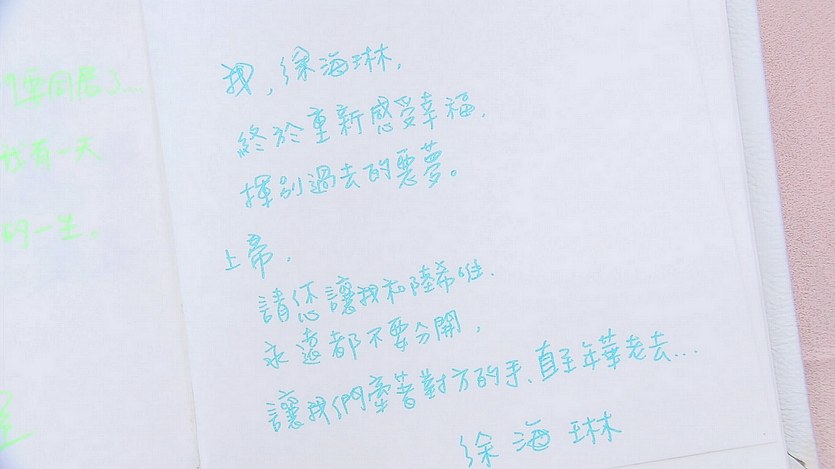 我有一天
的一生。
我,徐海琳,
終於重新感受幸福,
揮別過去的惡夢。
上帝,
請您讓我和陸希唯,
永遠都不要分開,
讓我們牽著對方的手、直至年華老去...
徐海琳